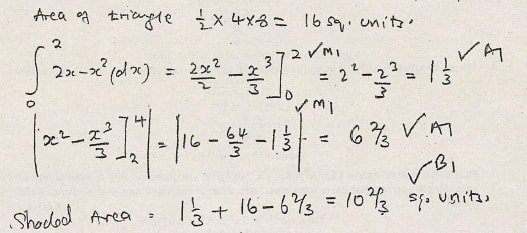 Area of triangle ½ × 4 × 8 = 16 sq. units.
∫₀² 2x - x² (dx) = [2x²/2 - x³/3]₀² ✓M1 = 2² - 2³/3 = 1⅓ ✓A1
|[x² - x³/3]₂⁴| = |16 - 64/3 - 1⅓| ✓M1 = 6⅔ ✓A1
✓B1
Shaded Area = 1⅓ + 16 - 6⅔ = 10⅔ sq. units,